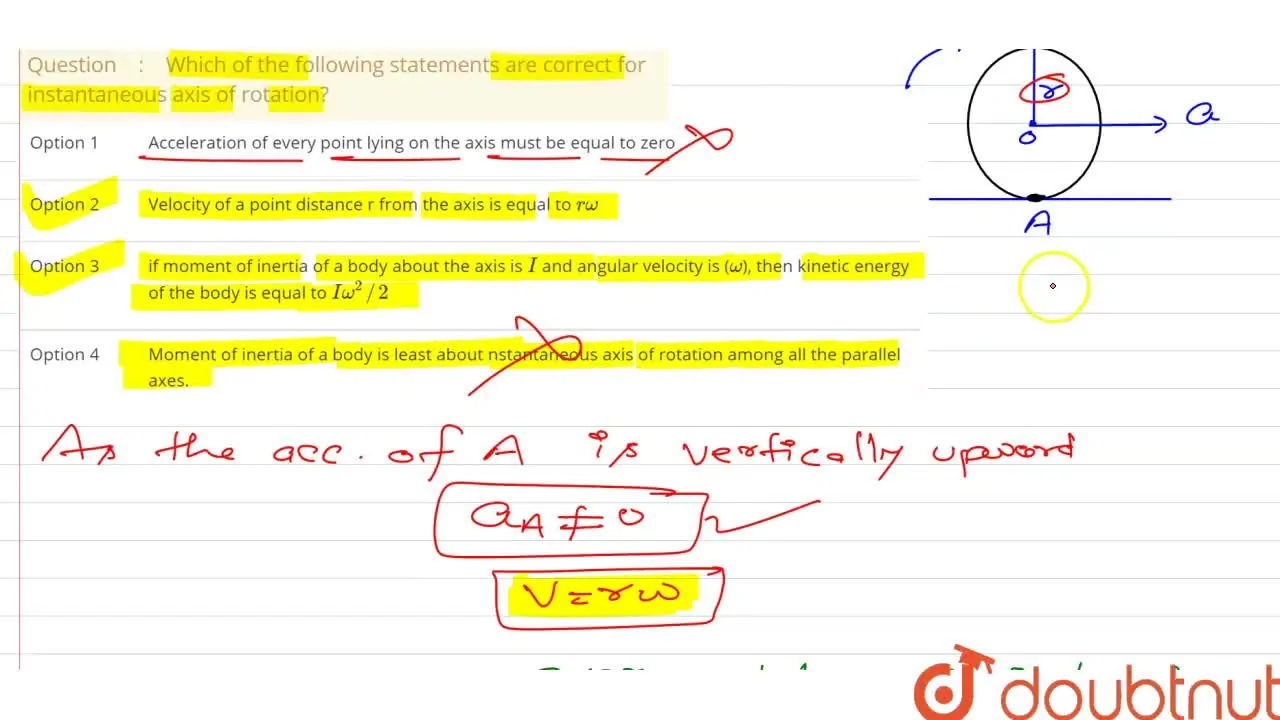 Question : Which of the following statements are correct for
instantaneous axis of rotation?
Option 1 Acceleration of every point lying on the axis must be equal to zero
Option 2 Velocity of a point distance r from the axis is equal to rω
Option 3 if moment of inertia of a body about the axis is I and angular velocity is (ω), then kinetic energy
of the body is equal to Iω²/2
Option 4 Moment of inertia of a body is least about nstantaneous axis of rotation among all the parallel
axes.
r
O
a
A
As the acc. of A is vertically upword
aA ≠ 0
V = rω
doubtnut